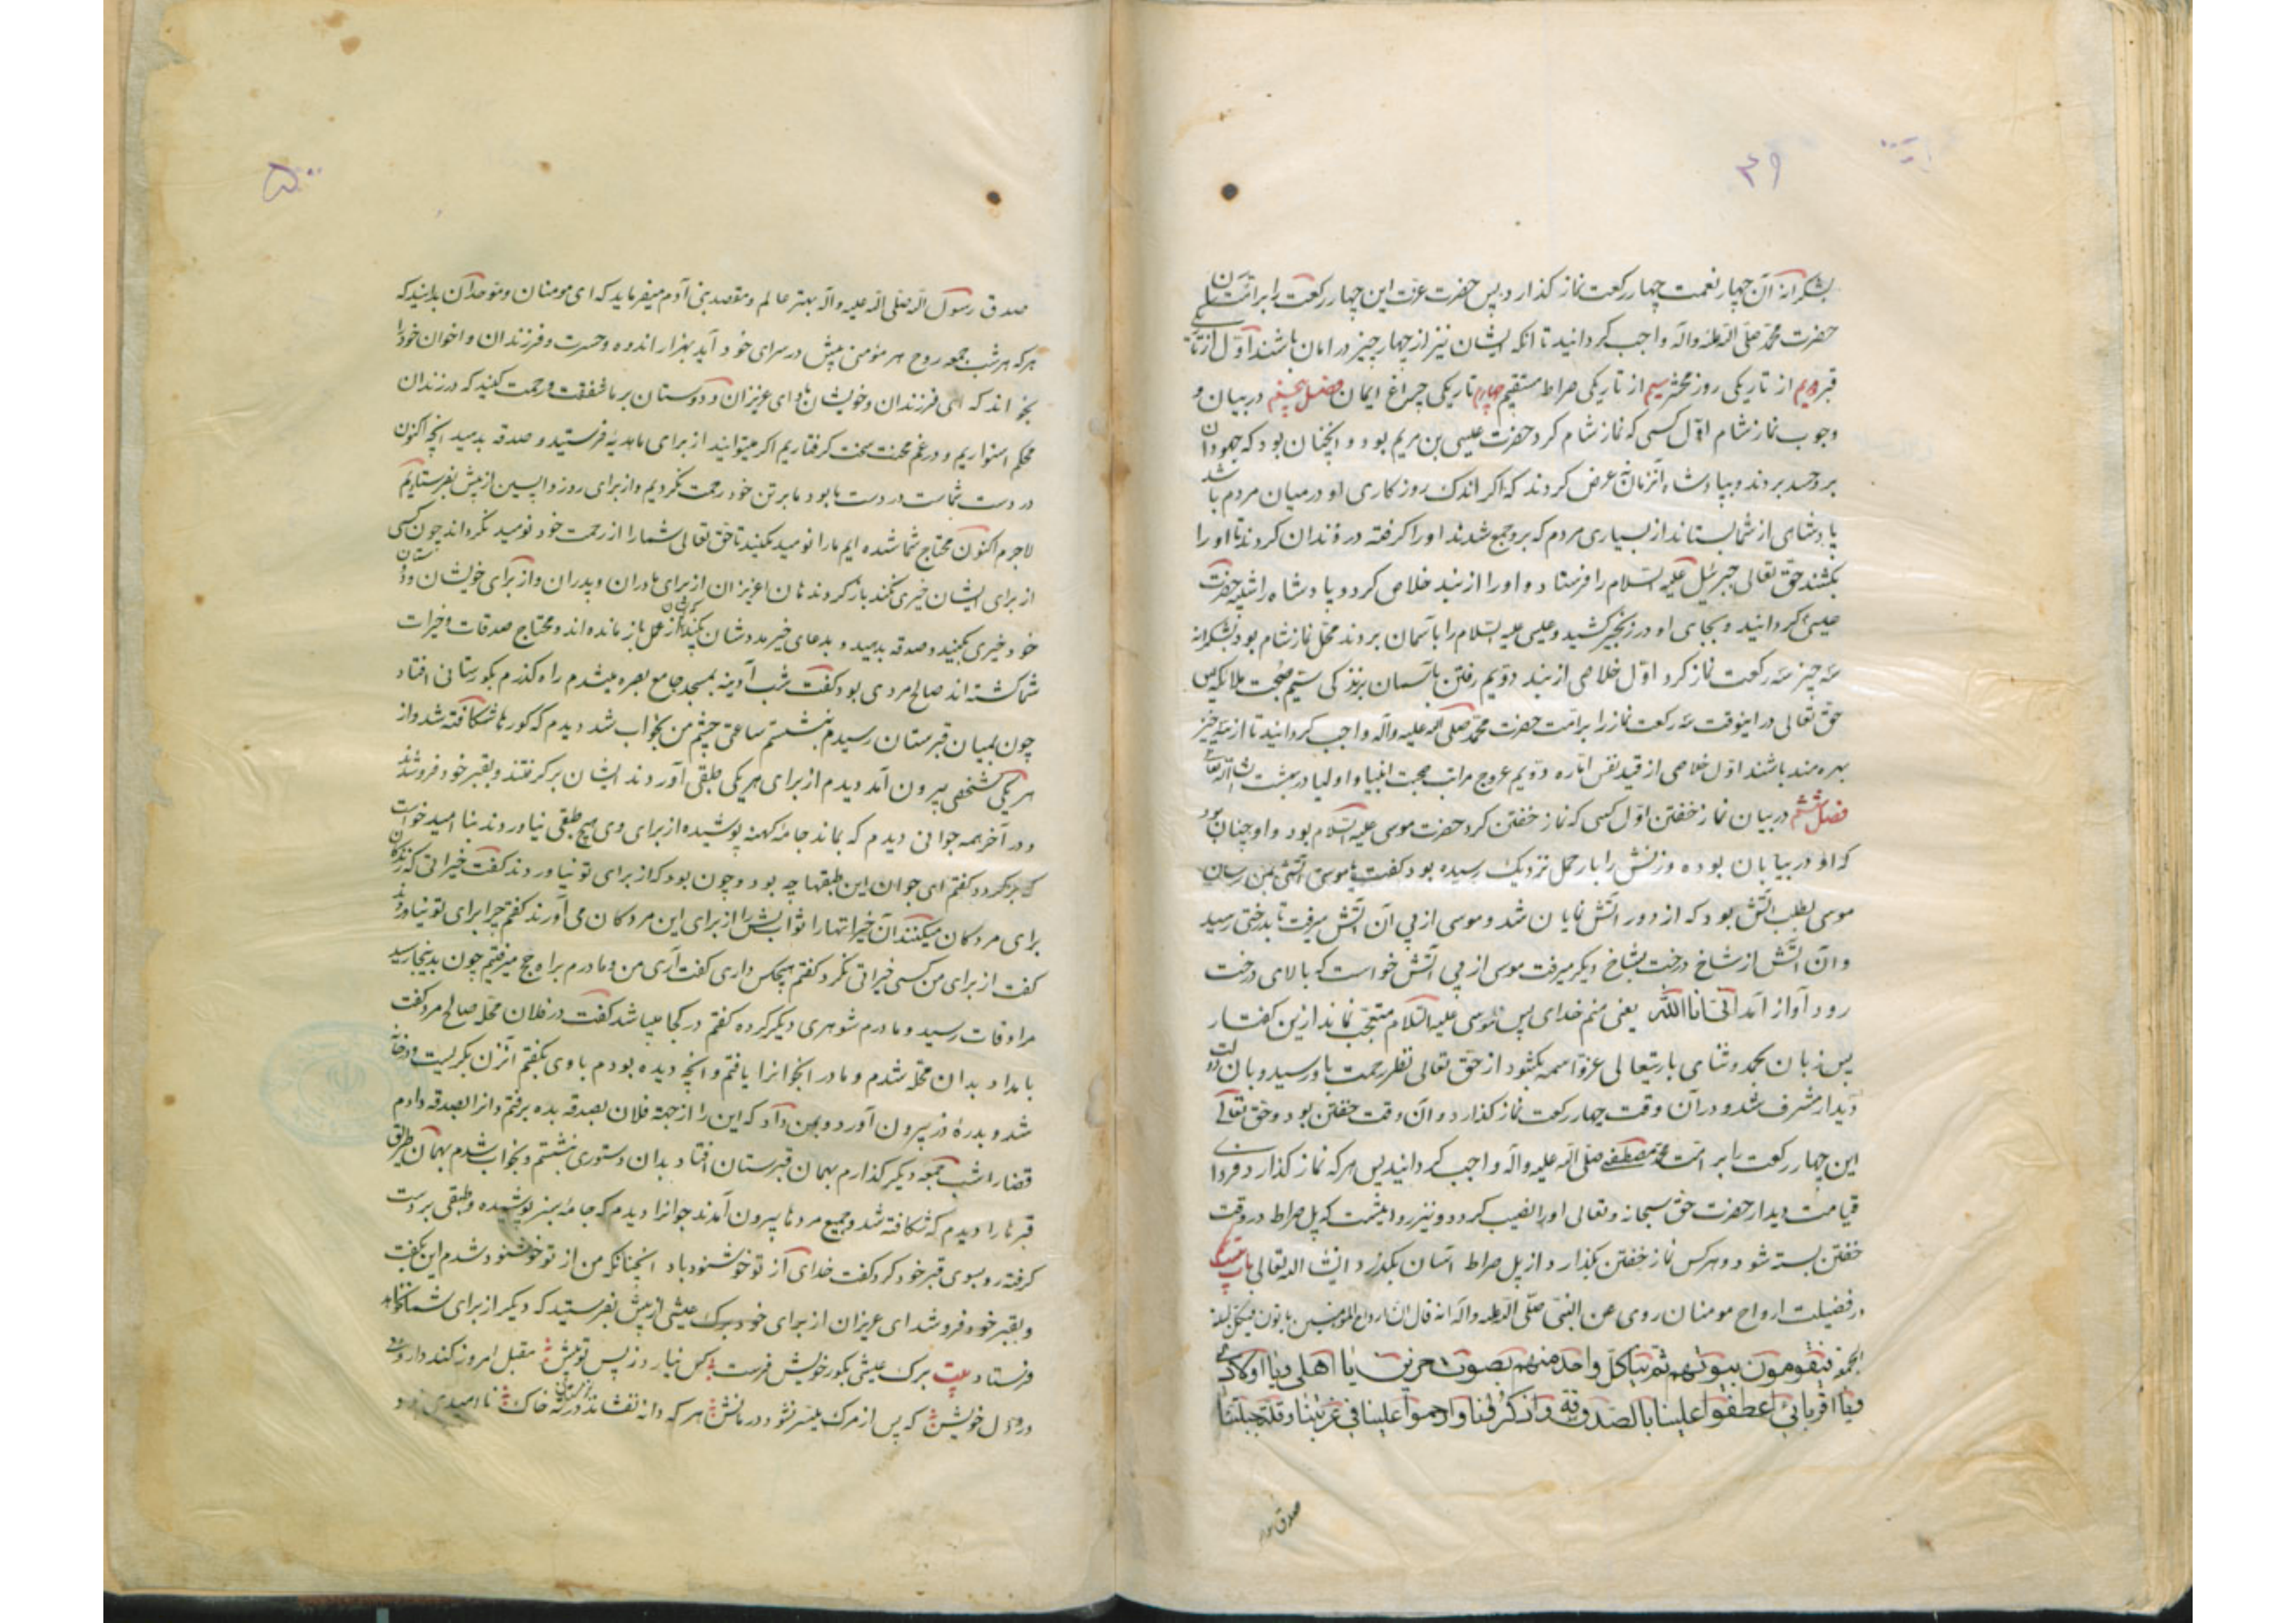 ۴۹
بشکرانه آن چهار نعمت چهار رکعت نماز کذارد پس حضرت عزت این چهار رکعت را بر امتان
حضرت محمد صلی الله علیه واله واجب کردانید تا انکه ایشان نیز از چهار چیز در امان باشند اول از تاریکی
قبر دویم از تاریکی روز محشر سیم از تاریکی صراط مستقیم چهارم تاریکی چراغ ایمان فصل پنجم در بیان و
وجوب نماز شام اول کسی که نماز شام کرد حضرت عیسی بن مریم بود و انچنان بود که جهودان
بر وحسد بردند و بپادشاه آنزمان عرض کردند که اکر اندک روزکاری او در میان مردم باشد
پادشاهی از شما بستاند از بسیاری مردم که برو جمع شدند اورا کرفته در زندان کردند تا اورا
بکشند حق تعالی جبرئیل علیه السلام را فرستاد و اورا از بند خلاص کرد و پادشاه را شبیه حضرت
عیسی کردانید و بجای او در زنجیر کشید و عیسی علیه السلام را باسمان بردند محل نماز شام بود بشکرانه
سه چیز سه رکعت نماز کرد اول خلاصی از بند دویم رفتن باسمان سیم صحبت ملایکه پس
حق تعالی در اینوقت سه رکعت نماز را بر امت حضرت محمد صلی الله علیه واله واجب کردانید تا از سه چیز
بهره مند باشند اول خلاصی از قید نفس اماره دویم عروج مراتب محبت انبیا و اولیا در بهشت انشاالله تعالی
فصل ششم در بیان نماز خفتن اول کسی که نماز خفتن کرد حضرت موسی علیه السلام بود و اوچنان بود
که او در بیابان بوده وزنش را بار حمل نزدیک رسیده بود کفت یا موسی اتشی بمن رسان
موسی بطلب اتش بود که از دور اتش نمایان شد و موسی از پی آن اتش میرفت تا بدرختی رسید
وان اتش از شاخ درخت بشاخ دیکر میرفت موسی از پی اتش خواست که بالای درخت
رود آواز آمد انی انا الله یعنی منم خدای پس موسی علیه السلام متعجب نماند ازین کفتار
پس زبان بحمد و ثنای باریتعالی عزاسمه بکشود از حق تعالی نظر رحمت باو رسید و بان دولت
دیدار مشرف شد و در آن وقت چهار رکعت نماز کذارد و ان وقت خفتن بود و حق تعالی
این چهار رکعت را بر امت محمد مصطفی صلی الله علیه واله واجب کردانید پس هرکه نماز کذارد فردای
قیامت دیدار حضرت حق سبحانه وتعالی اورا نصیب کردد و نیز روایتست که پل صراط در وقت
خفتن بسته شود و هرکس نماز خفتن بکذارد از پل صراط اسان بکذرد انشا الله تعالی باب
در فضیلت ارواح مومنان روی عن النبی صلی الله علیه واله انه قال ان ارواح المؤمنین یاتون فی کل لیلة
الجمعة فیقومون ببیوتهم ثم ینادی کل واحد منهم بصوت حزین یا اهلی ویا اولادی
ویا اقربائی اعطفوا علینا بالصدقة واذکرونا وارحموا علینا فی غربتنا وقلة حیلتنا
۵۰
صدق رسول الله صلی الله علیه وآله بهتر عالم و مقصد بنی آدم میفرماید که ای مومنان و موحدان بدانید که
هرکه هر شب جمعه روح هر مؤمنی پیش در سرای خود آید بهزار اندوه و حسرت و فرزندان و اخوان خود را
بخواند که ای فرزندان وخویشان و ای عزیزان و دوستان بر ما شفقت و رحمت کنید که در زندان
محکم استواریم و در غم محنت سخت کرفتاریم اکر میتوانید از برای ما هدیه فرستید و صدقه بدهید انچه اکنون
در دست شماست در دست ما بود ما بر تن خود رحمت نکردیم و از برای روز واپسین از پیش نفرستادیم
لاجرم اکنون محتاج شما شده ایم مارا نومید مکنید تا حق تعالی شما را از رحمت خود نومید نکرداند چون کسی
از برای ایشان خیری نکند باز کردند هان ای عزیزان از برای مادران و پدران و از برای خویشان ودوستان
خود خیری بکنید و صدقه بدهید و بدعای خیر مددشان بکنید که ایشان از عمل باز مانده اند و محتاج صدقات و خیرات
شما کشته اند صالح مردی بود کفت شب آدینه بمسجد جامع بصره میشدم راه کذرم بکورستانی افتاد
چون بمیان قبرستان رسیدم بنشستم ساعتی چشم من بخواب شد دیدم که کورها شکافته شد و از
هر یکی شخصی بیرون آمد دیدم از برای هر یکی طبقی آوردند ایشان بر کرفتند و بقبر خود فرو شدند
و در آخر همه جوانی دیدم که بماند جامه کهنه پوشیده از برای وی هیچ طبقی نیاوردند بنا امید خواست
که بر کردد کفتم ای جوان این طبقها چه بود و چون بود که از برای تو نیاوردند کفت خیراتی که زندکان
برای مردکان میکنند آن خیراتها را ثوابش را از برای این مردکان می آورند کفتم چرا برای تو نیاوردند
کفت از برای من کسی خیراتی نکرد کفتم هیچکس داری کفت آری من و مادرم براه حج میرفتیم چون بدینجا رسید
مرا وفات رسید و مادرم شوهری دیکر کرده کفتم در کجا میباشد کفت در فلان محله صالح مرد کفت
بامداد بدان محله شدم و مادر انجوانرا یافتم و انچه دیده بودم باوی بکفتم آنزن بکریست و درخانه
شد و بدرۀ زر بیرون آورد و بمن داد که این را از جهة فلان بصدقه بده برفتم وانرا بصدقه دادم
قضارا شب جمعه دیکر کذارم بهمان قبرستان افتاد بدان دستوری بنشستم و بخواب شدم بهمان طریق
قبرها را دیدم که شکافته شد و جمیع مردها بیرون آمدند جوانرا دیدم که جامۀ سبز پوشیده وطبقی بر دست
کرفته رو بسوی قبر خود کرد و کفت خدای از تو خوشنود باد انچنانکه من از تو خوشنود شدم این بکفت
و بقبر خود فرو شد ای عزیزان از برای خود برک عیشی از پیش بفرستید که دیکر از برای شما نخواهد
فرستاد بیت برک عیشی بکور خویش فرست کس نیارد ز پس تو پیش مقبل امروز کند داروی
درد دل خویش که پس از مرک میسر نشود درمانش هر که دانه نفشاند بزمستان در خاک نا امیدی بود